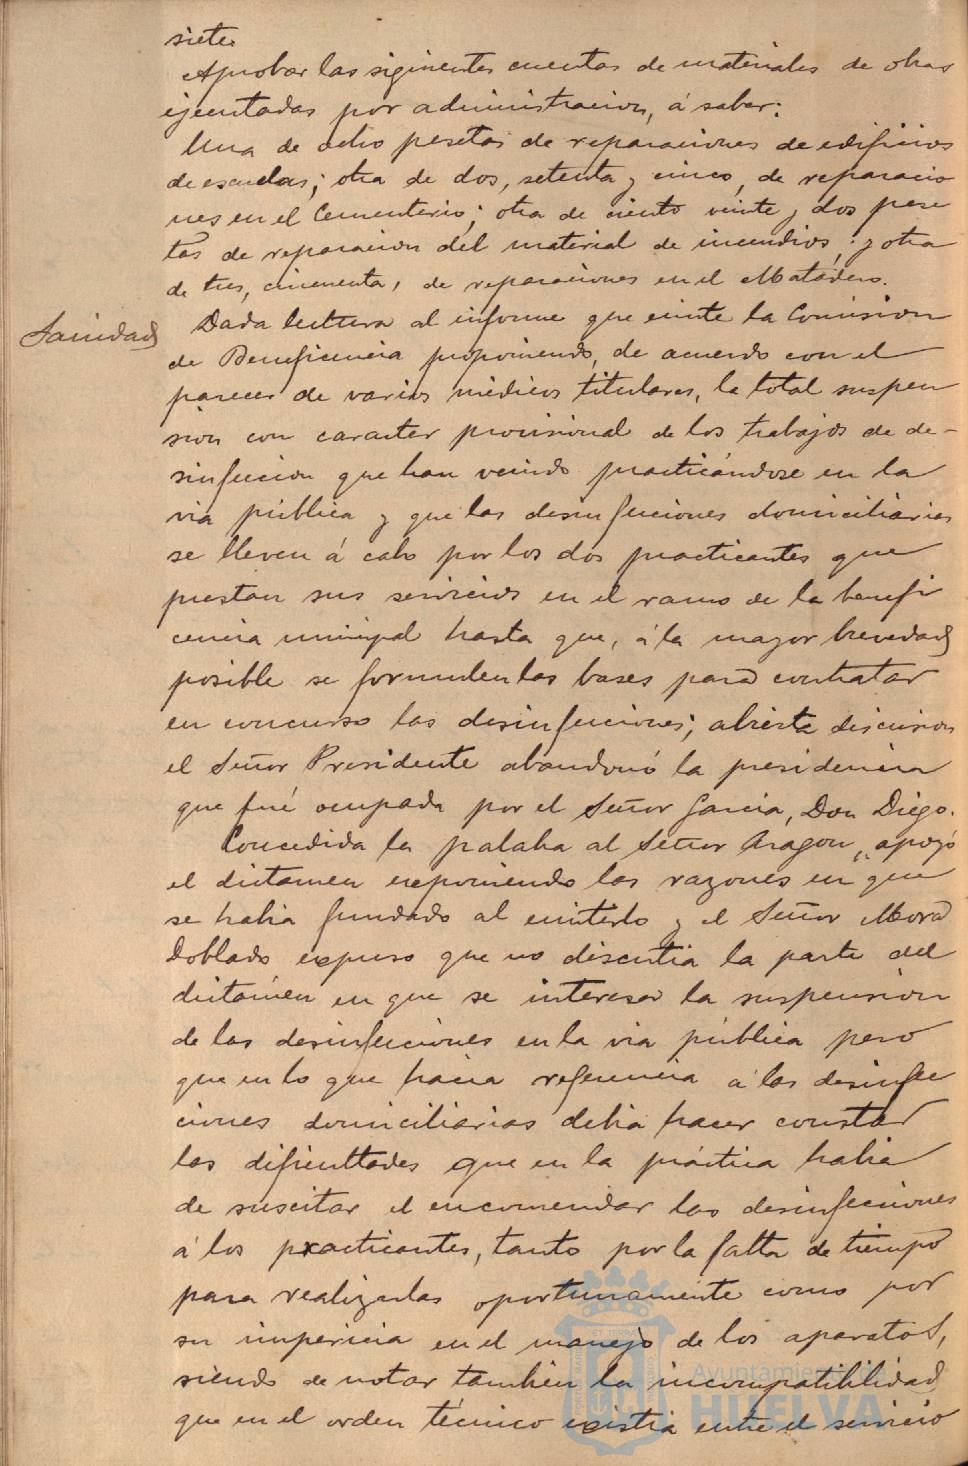 siete.
Aprobar las siguientes cuentas de materiales de obras
ejecutadas por administracion, á saber:
Una de ocho pesetas de reparaciones de edificios
de escuelas; otra de dos, setenta y cinco, de reparacio
nes en el Cementerio; otra de ciento veinte y dos pese
tas de reparacion del material de incendios; y otra
de tres, cincuenta, de reparaciones en el Matadero.
Sanidad
Dada lectura al informe que emite la Comision
de Beneficencia proponiendo, de acuerdo con el
parecer de varios médicos titulares, la total suspen
sion con caracter provisional de los trabajos de de-
sinfeccion que han venido practicándose en la
via pública y que las desinfecciones domiciliarias
se lleven á cabo por los dos practicantes que
prestan sus servicios en el ramo de la benefi
cencia municipal hasta que, á la mayor brevedad
posible se formulen las bases para contratar
en concurso las desinfecciones; abierta discusion
el Señor Presidente abandonó la presidencia
que fué ocupada por el Señor Garcia, Don Diego.
Concedida la palabra al Señor Aragon, apoyó
el dictamen exponiendo las razones en que
se habia fundado al emitirlo y el Señor Mora
Doblado expuso que no discutia la parte del
dictámen en que se interesa la suspension
de las desinfecciones en la via pública pero
que en lo que hacia referencia á las desinfec
ciones domiciliarias debia hacer constar
las dificultades que en la práctica habia
de suscitar el encomendar las desinfecciones
á los practicantes, tanto por la falta de tiempo
para realizarlas oportunamente como por
su impericia en el manejo de los aparatos,
siendo de notar tambien la incompatibilidad
que en el orden técnico existia entre el servicio
Ayuntamiento de
HUELVA